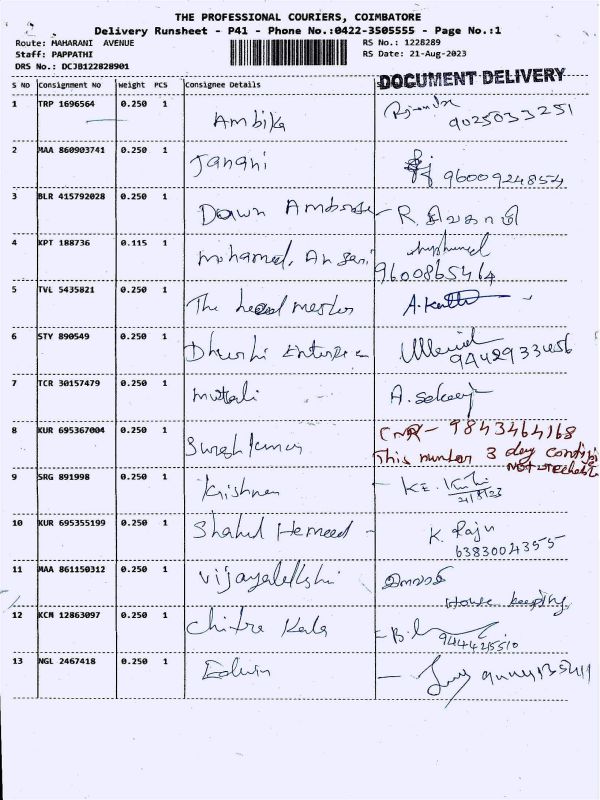 THE PROFESSIONAL COURIERS, COIMBATORE
Delivery Runsheet - P41 - Phone No.:0422-3505555 - Page No.:1
Route: MAHARANI AVENUE
Staff: PAPPATHI
DRS No.: DCJB122828901
RS No.: 1228289
RS Date: 21-Aug-2023
DOCUMENT DELIVERY
S NO Consignment No Weight PCS Consignee Details
1 TRP 1696564 0.250 1 Ambika
9025033251
2 MAA 860903741 0.250 1 Janani 9600924854
3 BLR 415792028 0.250 1 Dawn Ambrose - R. சிவகாமி
4 KPT 188736 0.115 1 Mohamed, Ansari
9600865464
5 TVL 5435821 0.250 1 The head mester
6 STY 890549 0.250 1
9442933456
7 TCR 30157479 0.250 1
8 KUR 695367004 0.250 1 Sureshkumar CNR - 9843464168
This number 3 day
9 SRG 891998 0.250 1 Krishnan
21/8/23
10 KUR 695355199 0.250 1 Shahul Hemeed - K. Raju
6383004355
11 MAA 861150312 0.250 1 Vijayalakshi
House keeping
12 KCM 12863097 0.250 1 Chitra Kala
9444215510
13 NGL 2467418 0.250 1 Edwin